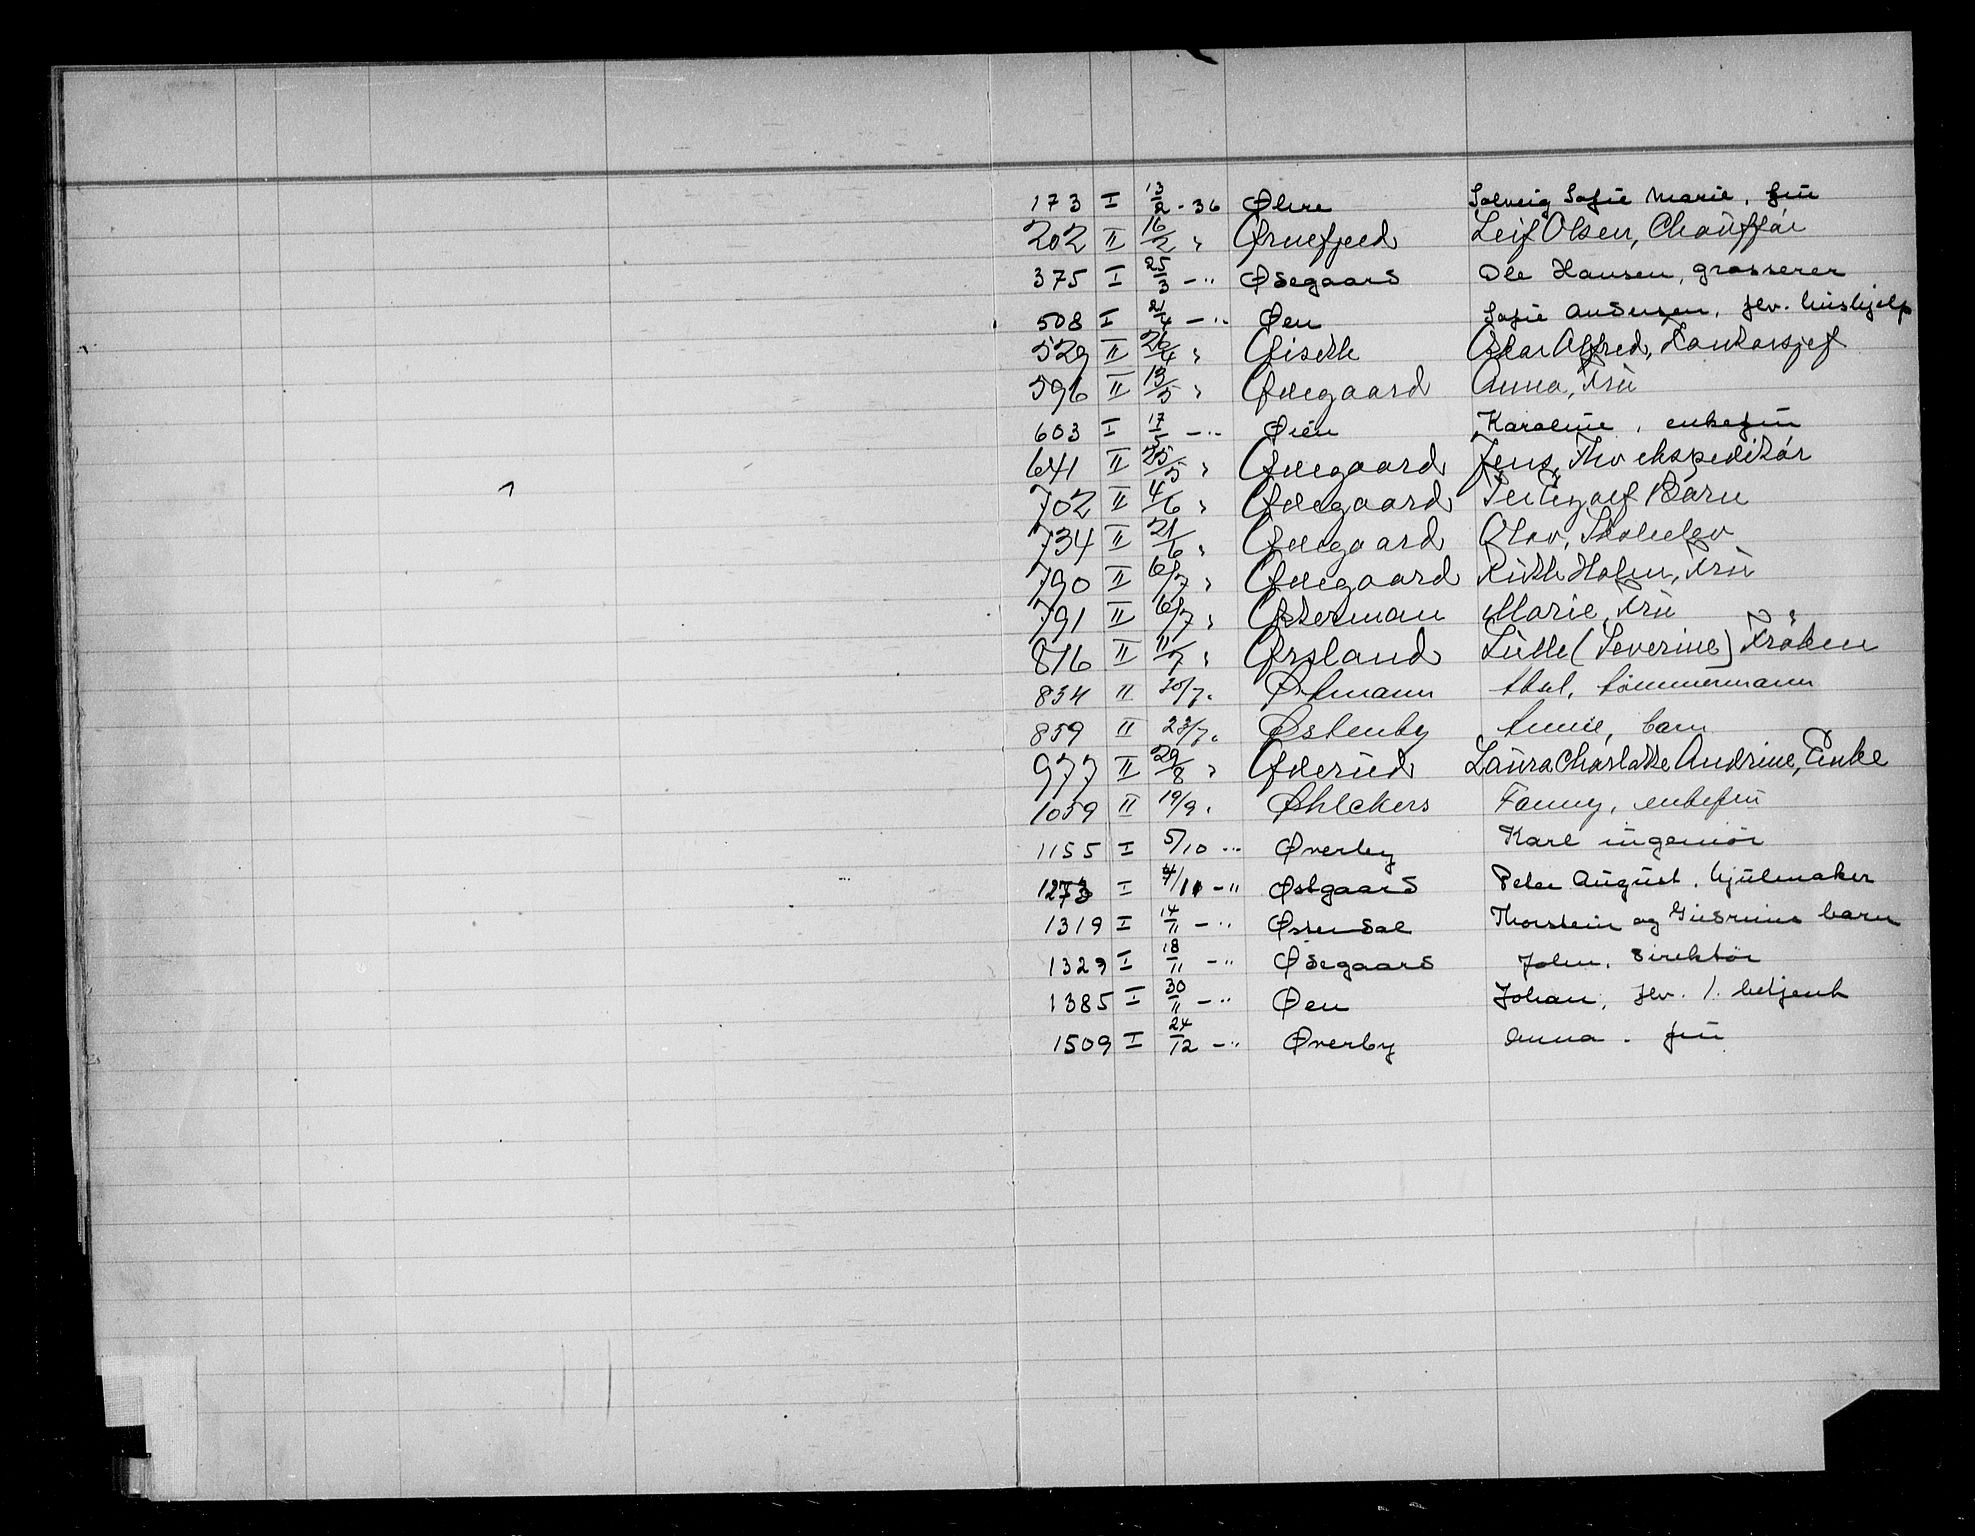 173 I 13/2 - 36 Øhre Solveig Sofie Marie, fru
202 II 16/2 " Ørnefjeld Leif Olsen, Chauffør
375 I 25/3 - " Ødegaard Ole Hansen, grosserer
508 I 2/4 - " Øen Sofie Andersen, fhv. hushjelp
529 II 26/4 " Alfred, Kontorsjef
596 II 13/5 " Ødegaard Anna, Fru
603 I 17/5 - " Øien Karoline, enkefru
641 II 25/5 " Ødegaard Jens, Fhv ekspeditør
702 II 4/6 " Ødegaard Barn
734 II 21/6 " Ødegaard Olav, Skoleelev
790 II 6/7 " Ødegaard Ruth Holm, Fru
791 II 6/7 " Østerman Marie, Fru
816 II 11/7 " Ørsland Lulle (Severine) Frøken
834 II /7 " Østmann Axel, tømmermann
859 II 23/7 " Østenby Annie, barn
977 II 29/8 " Øderud Laura Charlotte Andrine, Enke
1059 II 19/9 " Øhlckers Fanny, enkefru
1155 I 5/10 - " Øverby Karl ingeniør
1273 I 4/11 - " Østgaard Peter August, hjulmaker
1319 I 14/11 - " Østendal Thorstein og Gudruns barn
1329 I 18/11 - " Ødegaard John, direktør
1385 I 30/11 - " Øen Johan, fhv. betjent
1509 I 24/12 - " Øverby Anna, fru